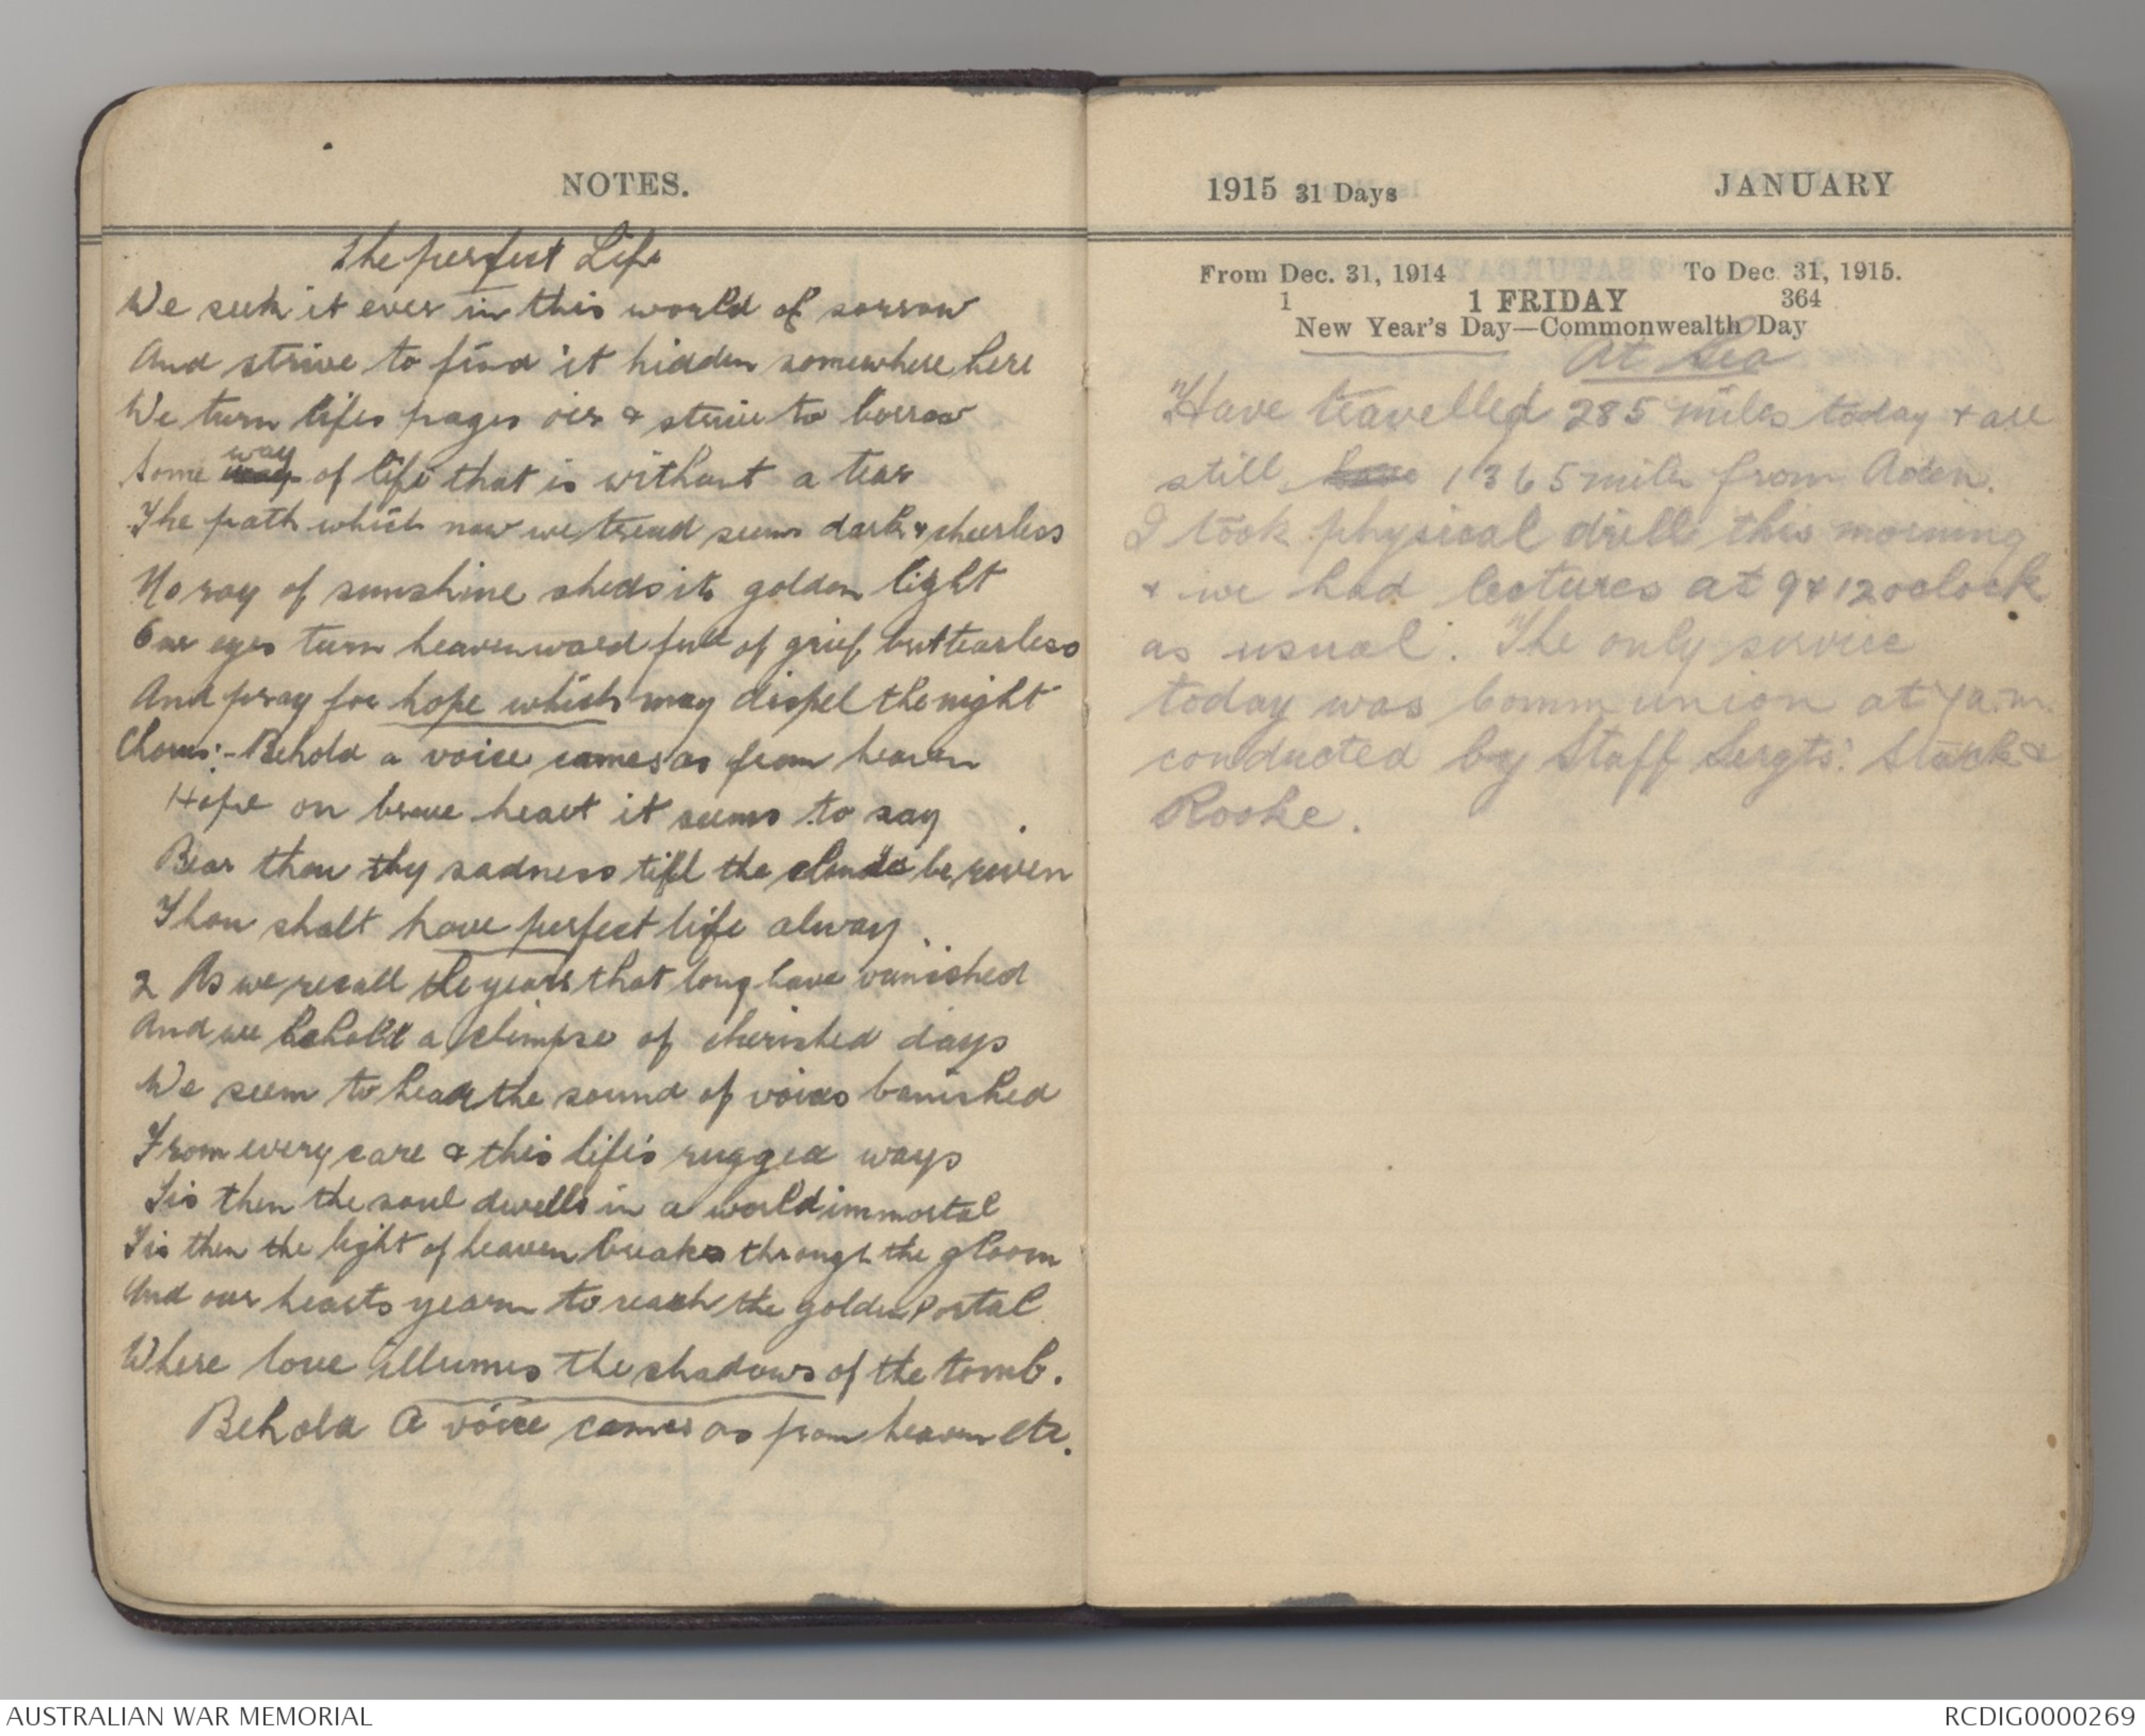 NOTES.
The perfect Life
We seek it ever in this world of sorrow
And strive to find it hidden somewhere here
We turn lifes pages oer & strive to borrow
way
Some of life that is without a tear
The path which now we tread seems dark & cheerless
No ray of sunshine sheds its golden light
Our eyes turn heavenward full of grief but tearless
And pray for hope which may dispel the night
Chorus:- Behold a voice comes as from heaven
Hope on brave heart it seems to say
Bear thou thy sadness till the clouds be riven
Thou shalt have perfect life alway
2 As we recall the years that long have vanished
And we behold a glimpse of cherished days
We seem to hear the sound of voices banished
From every care & this life's rugged ways
Tis then the soul dwells in a world immortal
Tis then the light of heaven breaks through the gloom
And our hearts yearn to reach the golden Portal
Where love illumes the shadows of the tomb.
Behold A voice comes as from heaven etc.
1915 31 Days JANUARY
From Dec. 31, 1914 To Dec. 31, 1915.
1 1 FRIDAY 364
New Year's Day—Commonwealth Day
At Sea
"Have travelled 285 miles today & are
still 1365 miles from Aden.
I took physical drill this morning
& we had lectures at 9 & 12 oclock
as usual. The only service
today was Communion at 7 a.m.
conducted by Staff Sergts: Stack &
Rooke.
AUSTRALIAN WAR MEMORIAL
RCDIG0000269